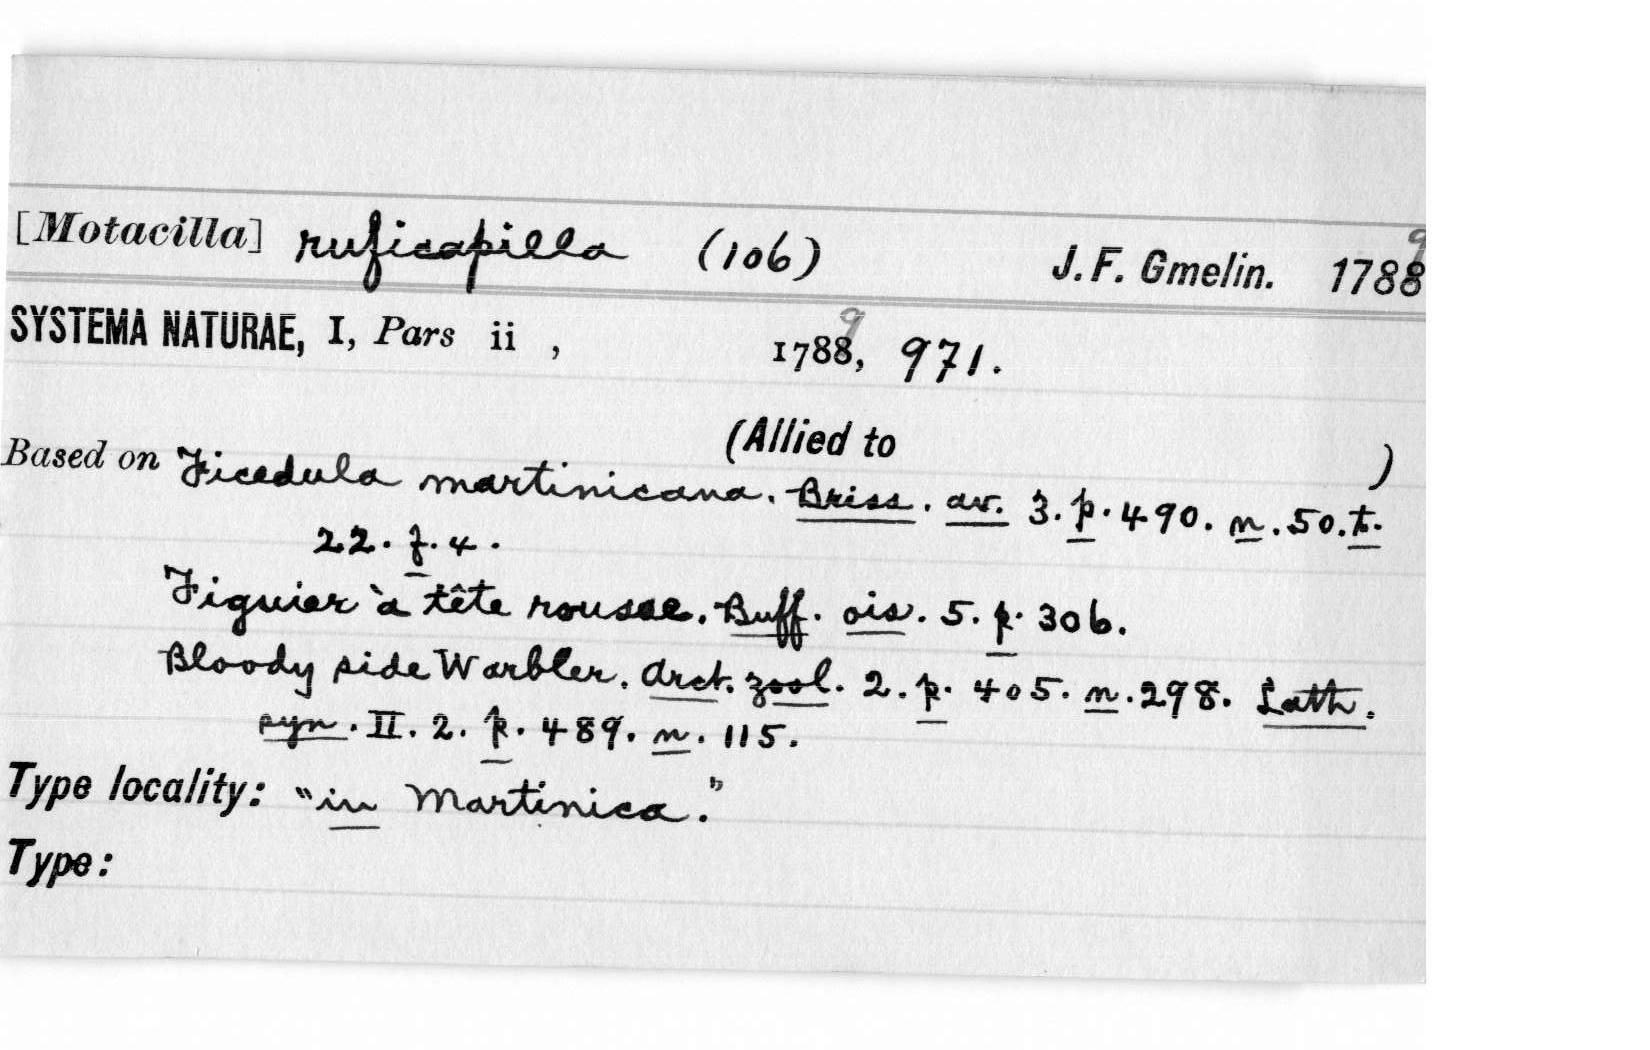 [Motacilla] ruficapilla (106) J. F. Gmelin. 1788 9
SYSTEMA NATURAE, I, Pars ii , 1788, 9 971.
(Allied to )
Based on Ficedula martinicana. Briss. av. 3. p. 490. n. 50. t.
22. f. 4.
Figuier à tête rousse. Buff. ois. 5. p. 306.
Bloody side Warbler. Arct. zool. 2. p. 405. n. 298. Lath.
syn. II. 2. p. 489. n. 115.
Type locality: "in Martinica."
Type: